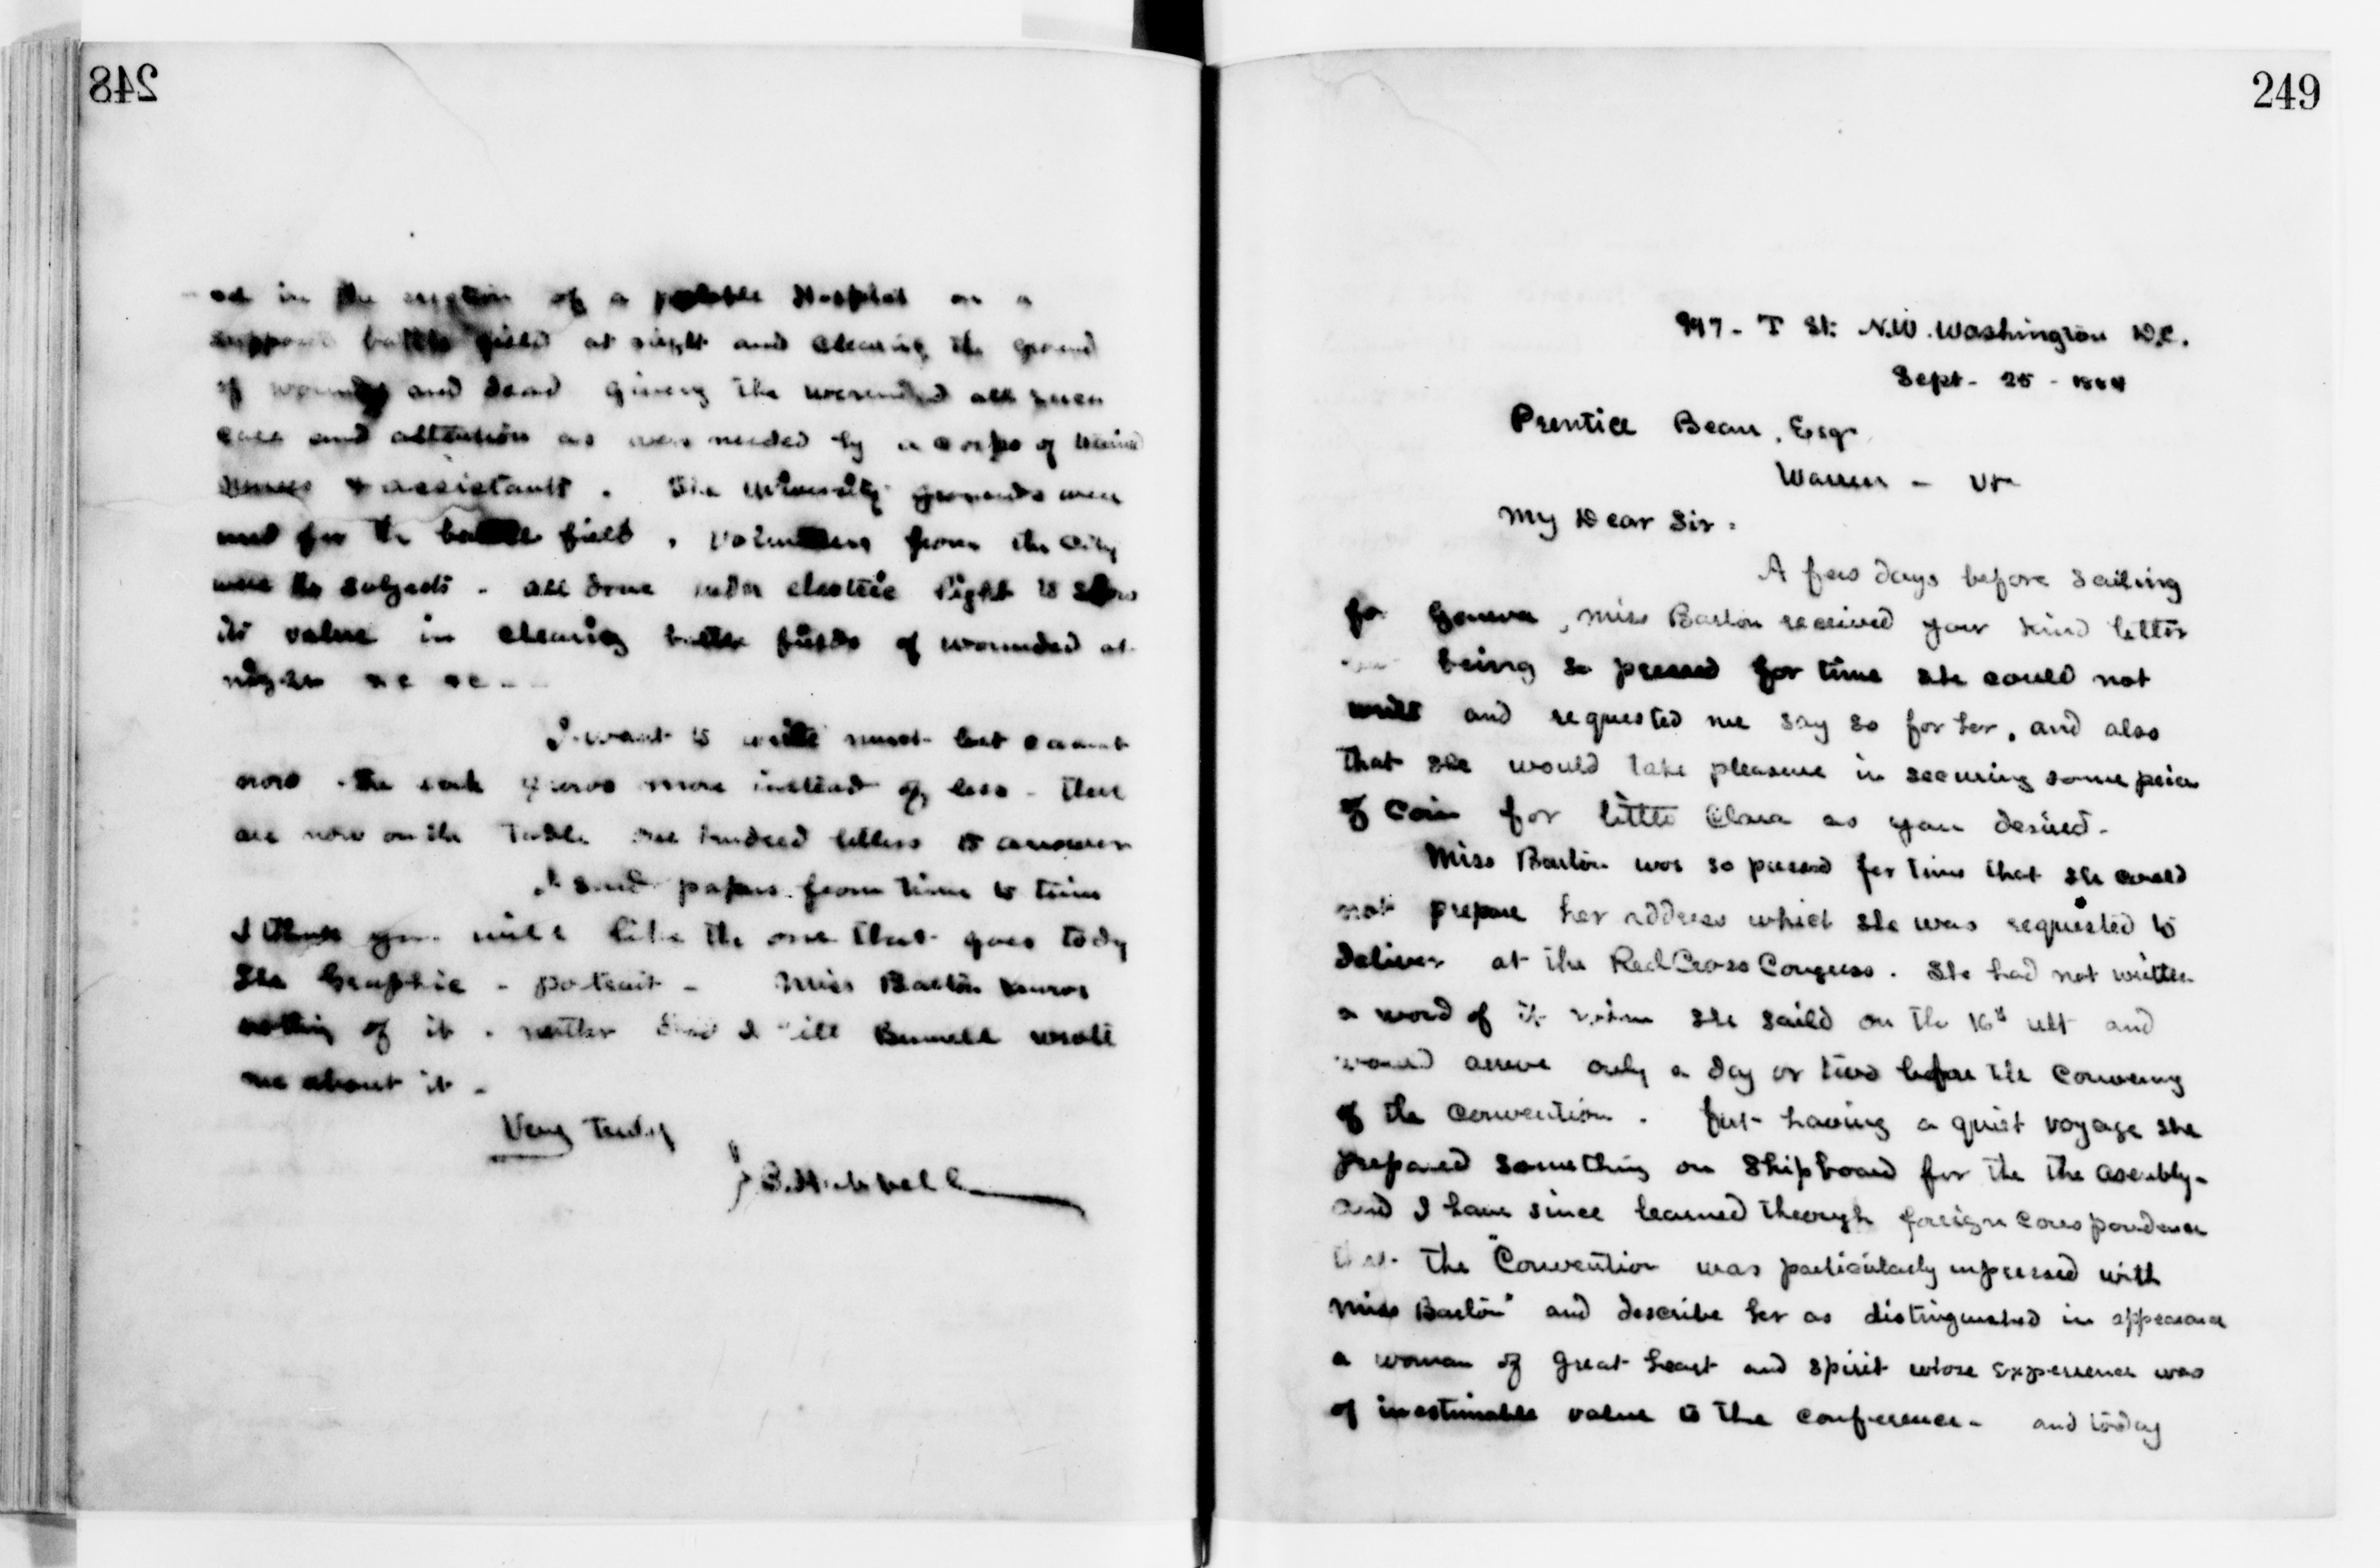 248
ed in the erection of a portable Hospital on a
supposed battle field at night and clearing the ground
of wounded and dead giving the wounded all such
care and attention as were needed by a corps of trained
nurses & assistants. The University grounds were
used for the battle field, volunteers from the City
were the subjects - all done under electric light to show
its value in clearing battle fields of wounded at
night
I want to write must but cannot
now - the work grows more instead of less - there
are now on the Table one hundred letters to answer
I send papers from time to time
I think you will like the one that goes today
The Graphic - potrait - Miss Barton knows
nothing of it. neither did I till Bunnell wrote
me about it -
Very Truly
J B. Hubbell
249
947 - T St: N.W. Washington D.C.
Sept - 25 - 1884
Prentice Bean, Esq
Warren - Vt
My Dear Sir:
A few days before sailing
for Geneva, Miss Barton received your kind letter
being so pressed for time she could not
write and requested me say so for her, and also
that she would take pleasure in securing some piece
of Coin for little Clara as you desired -
Miss Barton was so pressed for time that she could
not prepare her address which she was requested to
deliver at the Red Cross Congress. She had not written
a word of it when she saild on the 16th ult and
would arrive only a day or two before the Convening
of the Convention. but having a quiet voyage she
prepared something on Shipboard for the the assembly -
and I have since learned through foreign correspondence
that the "Convention was particularly impressed with
Miss Barton" and describe her as distinguished in appearance
a woman of great heart and spirit whose experience was
of inestimable value to the conference - and today